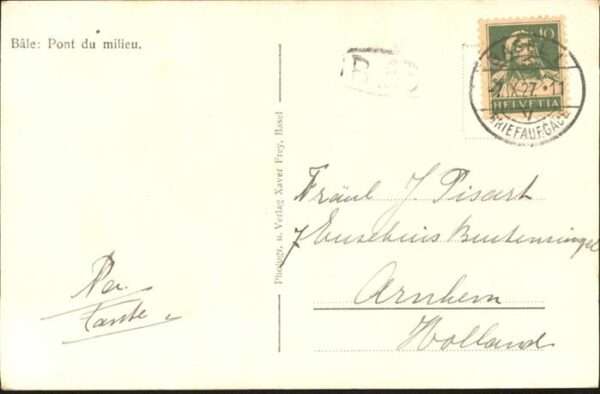 Bâle: Pont du milieu.
10
HELVETIA
BASEL
7.IX.27.-11
V
BRIEFAUFGABE
Photogr. u. Verlag Xaver Frey, Basel
Fräul J. Pisart
7 Eusebius Buitensingel
Arnhem
Holland
Tante